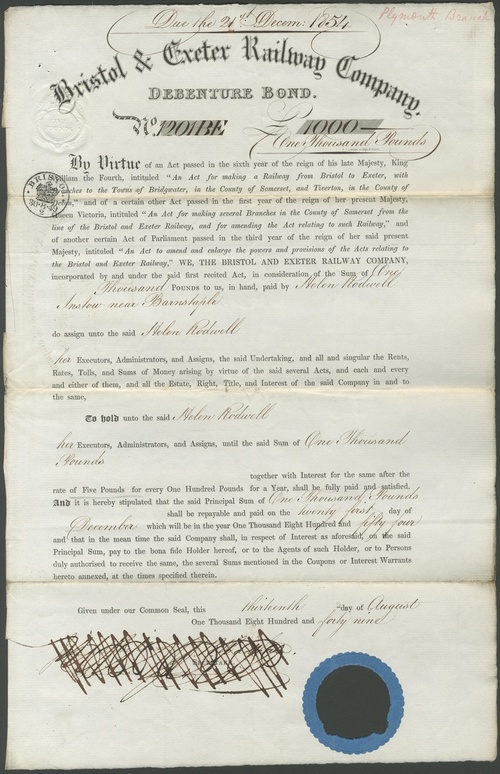 Due the 21st Decem: 1854
Plymouth Branch
Bristol & Exeter Railway Company.
DEBENTURE BOND.
No. 1201BE £1000—
One Thousand Pounds
By Virtue of an Act passed in the sixth year of the reign of his late Majesty, King
William the Fourth, intituled "An Act for making a Railway from Bristol to Exeter, with
Branches to the Towns of Bridgwater, in the County of Somerset, and Tiverton, in the County of
Devon," and of a certain other Act passed in the first year of the reign of her present Majesty,
Queen Victoria, intituled "An Act for making several Branches in the County of Somerset from the
line of the Bristol and Exeter Railway, and for amending the Act relating to such Railway," and
of another certain Act of Parliament passed in the third year of the reign of her said present
Majesty, intituled "An Act to amend and enlarge the powers and provisions of the Acts relating to
the Bristol and Exeter Railway," WE, THE BRISTOL AND EXETER RAILWAY COMPANY,
incorporated by and under the said first recited Act, in consideration of the Sum of One
Thousand POUNDS to us, in hand, paid by Helen Rodwell
Instow near Barnstaple
do assign unto the said Helen Rodwell
her Executors, Administrators, and Assigns, the said Undertaking, and all and singular the Rents,
Rates, Tolls, and Sums of Money arising by virtue of the said several Acts, and each and every
and either of them, and all the Estate, Right, Title, and Interest of the said Company in and to
the same,
To hold unto the said Helen Rodwell
her Executors, Administrators, and Assigns, until the said Sum of One Thousand
Pounds
together with Interest for the same after the
rate of Five Pounds for every One Hundred Pounds for a Year, shall be fully paid and satisfied.
And it is hereby stipulated that the said Principal Sum of One Thousand Pounds
shall be repayable and paid on the twenty first day of
December which will be in the year One Thousand Eight Hundred and fifty four
and that in the mean time the said Company shall, in respect of Interest as aforesaid, on the said
Principal Sum, pay to the bona fide Holder hereof, or to the Agents of such Holder, or to Persons
duly authorised to receive the same, the several Sums mentioned in the Coupons or Interest Warrants
hereto annexed, at the times specified therein.
Given under our Common Seal, this thirteenth day of August
One Thousand Eight Hundred and forty nine
BRISTOL